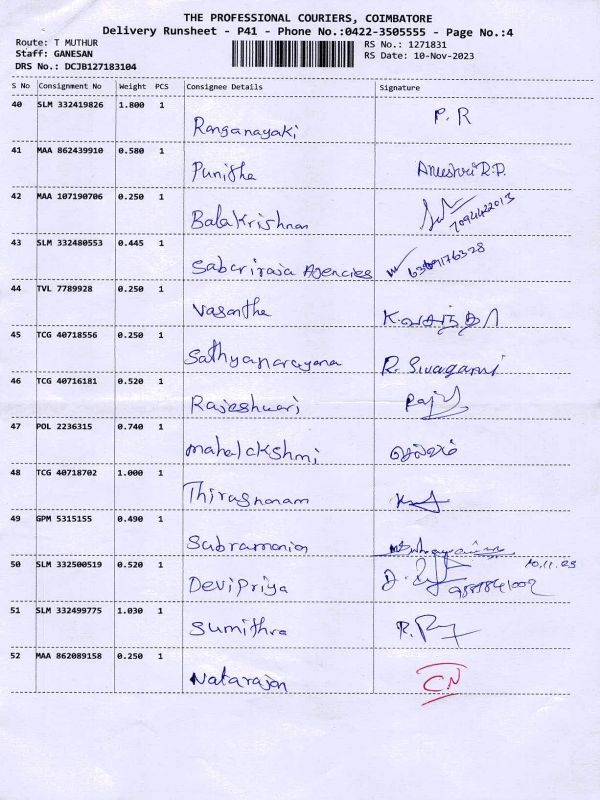 THE PROFESSIONAL COURIERS, COIMBATORE
Delivery Runsheet - P41 - Phone No.:0422-3505555 - Page No.:4
Route: T MUTHUR RS No.: 1271831
Staff: GANESAN RS Date: 10-Nov-2023
DRS No.: DCJB127183104
S No Consignment No Weight PCS Consignee Details Signature
40 SLM 332419826 1.800 1 Ranganayaki P.R
41 MAA 862439910 0.580 1 Punitha
42 MAA 107190706 0.250 1 Balakrishnan 7094422013
43 SLM 332480553 0.445 1 Sabariraja Agencies
44 TVL 7789928 0.250 1 Vasantha K.வசந்தா
45 TCG 40718556 0.250 1 Sathyanarayana R. Sivagami
46 TCG 40716181 0.520 1 Rajeshwari
47 POL 2236315 0.740 1 mahalakshmi செல்வம்
48 TCG 40718702 1.000 1
49 GPM 5315155 0.490 1 Subramanian
50 SLM 332500519 0.520 1 Devipriya 10.11.23
51 SLM 332499775 1.030 1 Sumithra
52 MAA 862089158 0.250 1 Natarajan CN